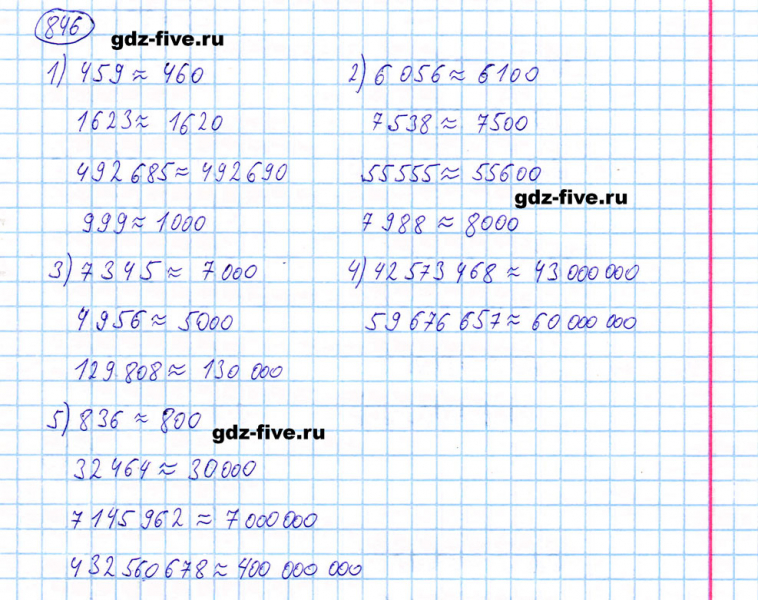 846
gdz-five.ru
1) 459 ≈ 460
1623 ≈ 1620
492 685 ≈ 492690
999 ≈ 1000
2) 6 056 ≈ 6100
7538 ≈ 7500
55555 ≈ 55600
gdz-five.ru
7 988 ≈ 8000
3) 7345 ≈ 7000
4956 ≈ 5000
129 808 ≈ 130 000
4) 42 573 468 ≈ 43 000 000
59 676 657 ≈ 60 000 000
5) 836 ≈ 800
gdz-five.ru
32464 ≈ 30000
7 145 962 ≈ 7 000 000
432 560 678 ≈ 400 000 000